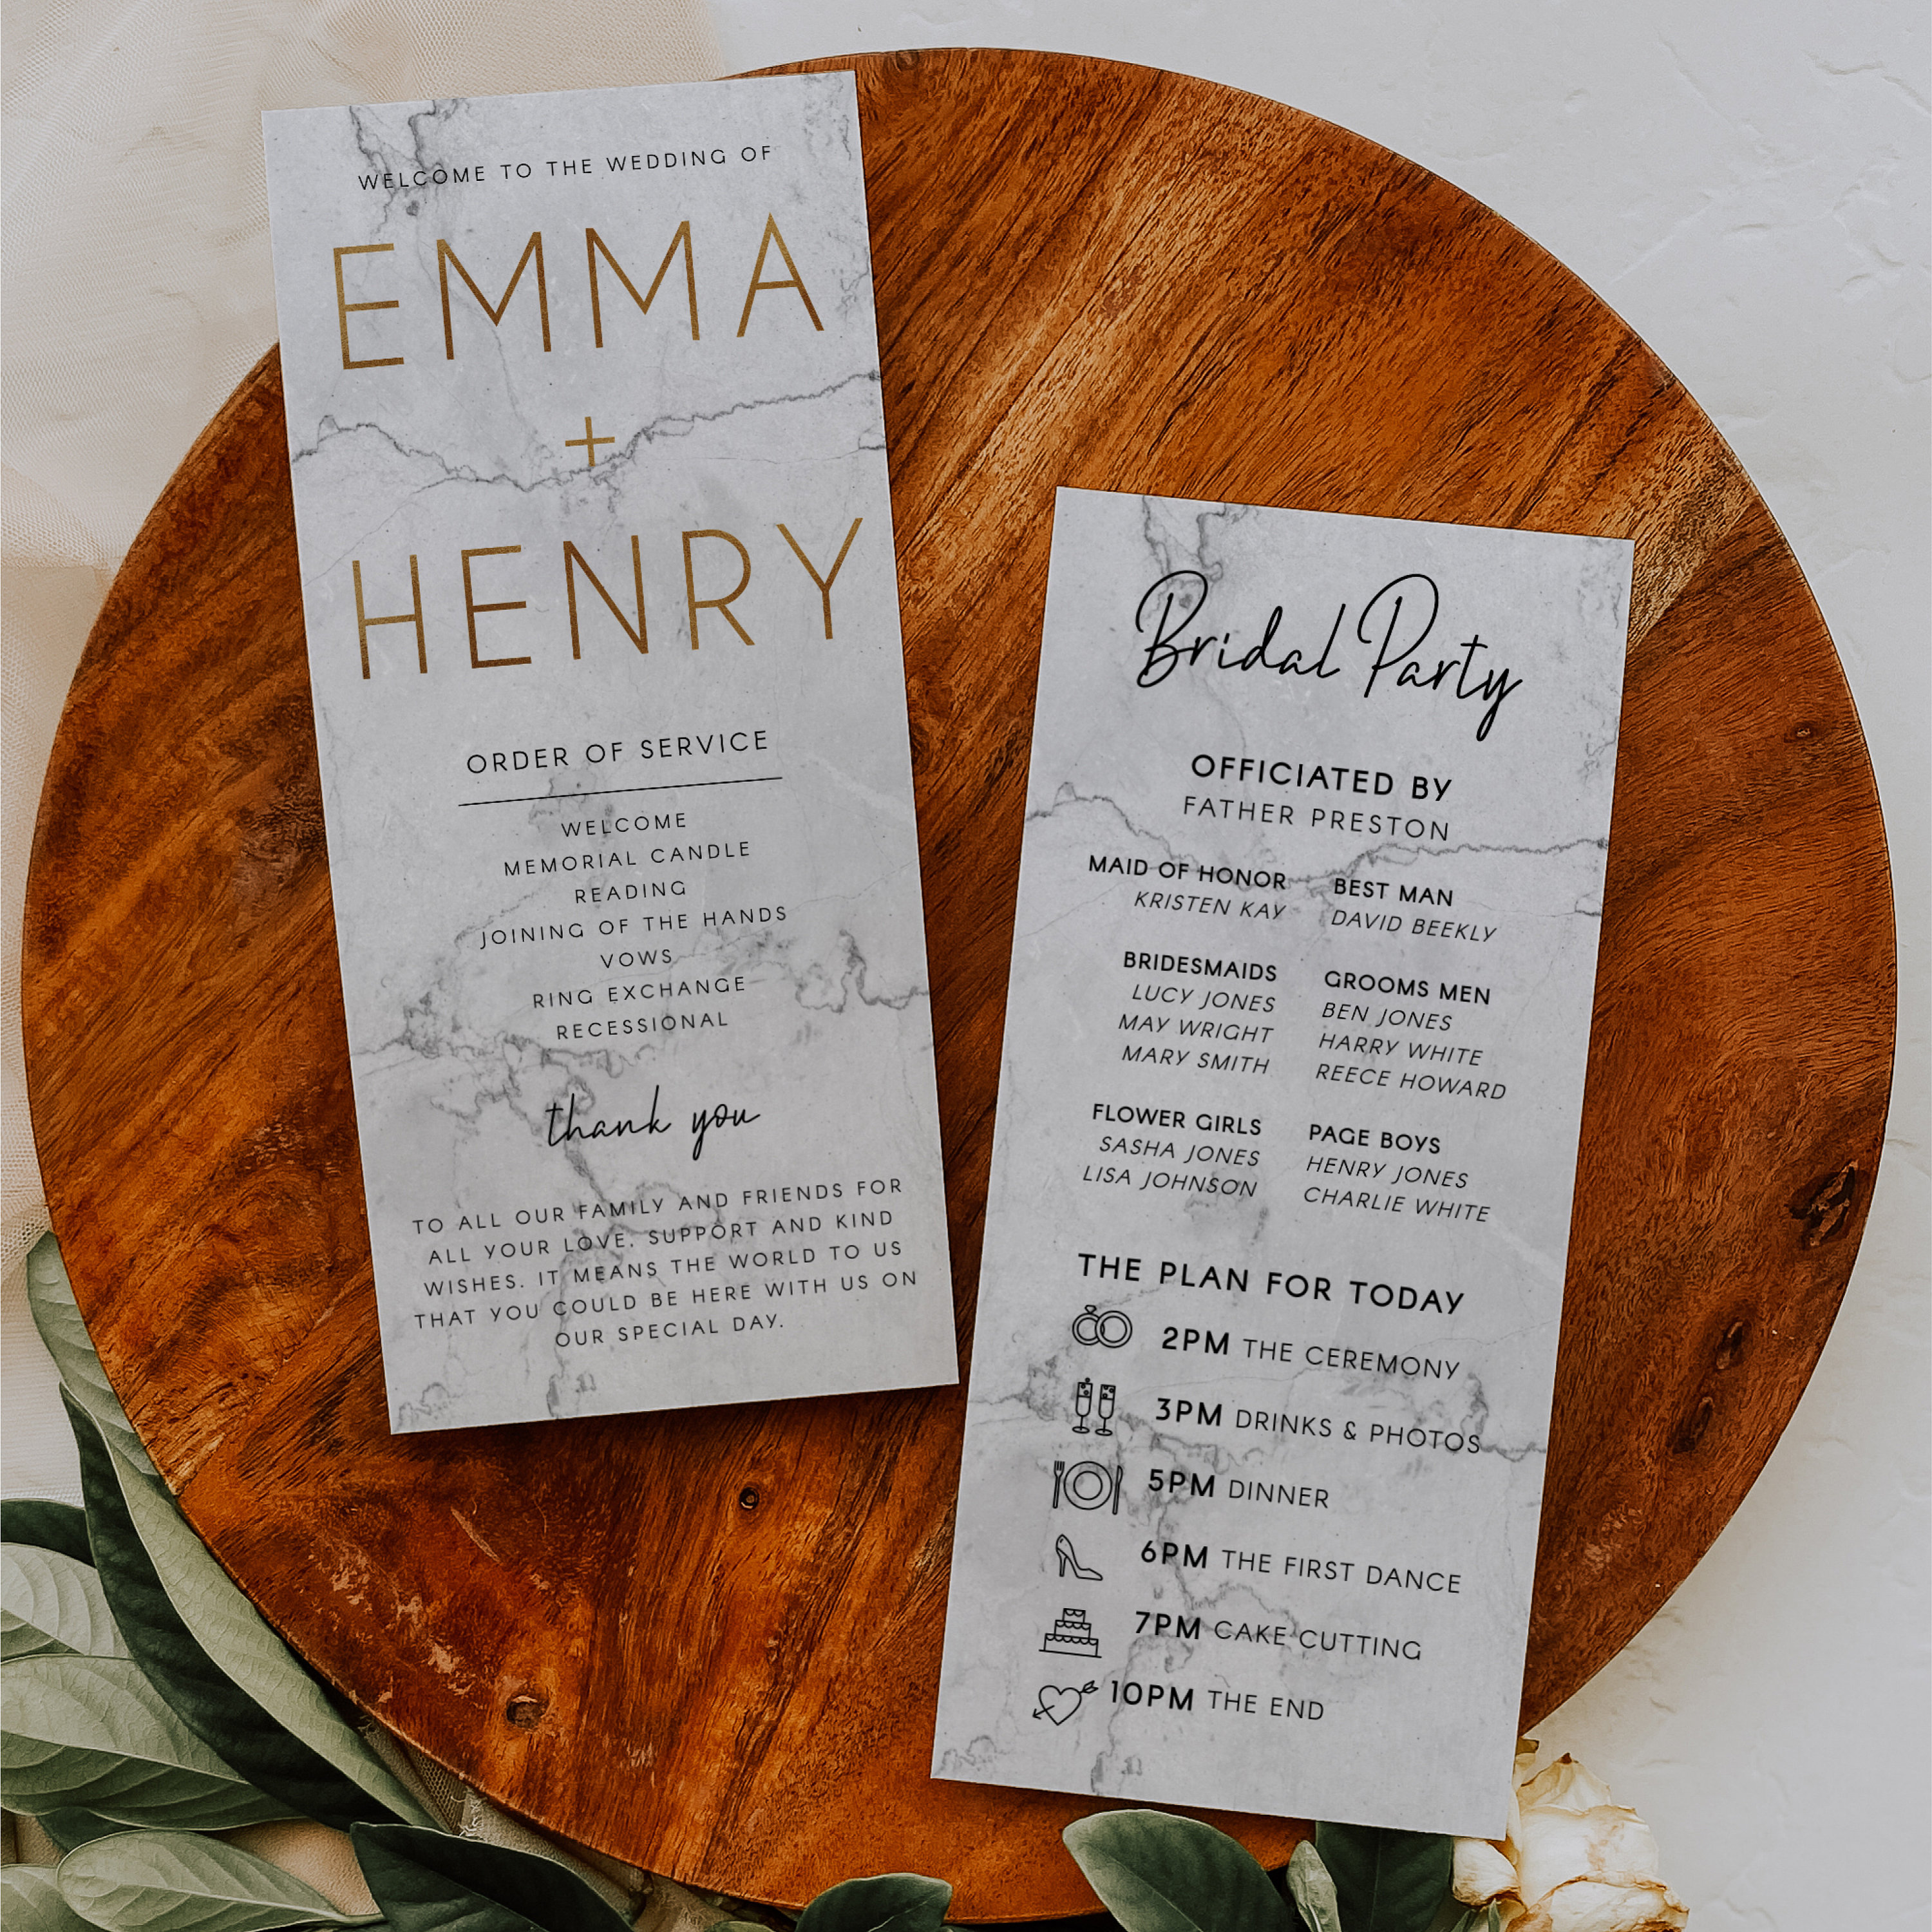 WELCOME TO THE WEDDING OF
EMMA
+
HENRY
ORDER OF SERVICE
WELCOME
MEMORIAL CANDLE
READING
JOINING OF THE HANDS
VOWS
RING EXCHANGE
RECESSIONAL
thank you
TO ALL OUR FAMILY AND FRIENDS FOR
ALL YOUR LOVE, SUPPORT AND KIND
WISHES. IT MEANS THE WORLD TO US
THAT YOU COULD BE HERE WITH US ON
OUR SPECIAL DAY.
Bridal Party
OFFICIATED BY
FATHER PRESTON
MAID OF HONOR
KRISTEN KAY
BEST MAN
DAVID BEEKLY
BRIDESMAIDS
LUCY JONES
MAY WRIGHT
MARY SMITH
GROOMS MEN
BEN JONES
HARRY WHITE
REECE HOWARD
FLOWER GIRLS
SASHA JONES
LISA JOHNSON
PAGE BOYS
HENRY JONES
CHARLIE WHITE
THE PLAN FOR TODAY
2PM THE CEREMONY
3PM DRINKS & PHOTOS
5PM DINNER
6PM THE FIRST DANCE
7PM CAKE CUTTING
10PM THE END